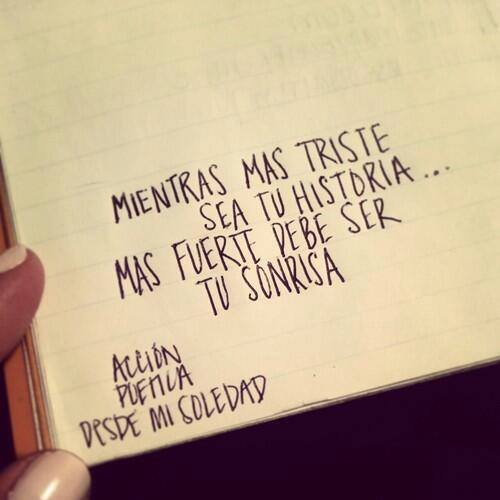 MIENTRAS MAS TRISTE
SEA TU HISTORIA...
MAS FUERTE DEBE SER
TU SONRISA
ACCIÓN
POETICA
DESDE MI SOLEDAD